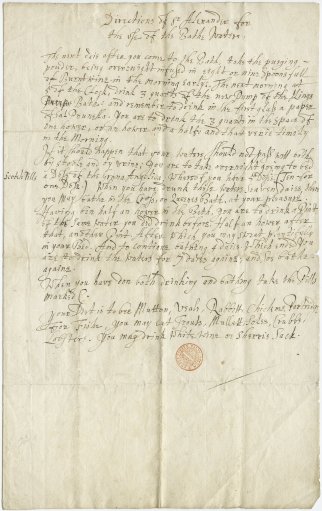 Directions of Sr Alexander for
the use of the Bathe Waters.
The next daie after you come to the Bath, take the purging
powder, being overnight infused in eight or nine spoons full
of Burntwine in the morning early. The next morning at
of the Clock, drink 3 quarts of the new Pump of the Kings
Bathe: and remember to drink in the first glass a paper
of Sal Prunella. You are to drink the 3 quarts in the space of
one houre, or an houre and a halfe and that once timely
in the Morning.
If it should happen that your waters, should not pass well
by stoole and by urine, you are to take overnight going to bed
Scotch Pills
a Dose of the (whereof you have 2 Doses Ten for
one Dose.) When you have drunk those waters, seven daies, then
you may bathe in the Cross, or Queens Bath, at your pleasure.
Having ben half an houre in the Bath, you are to drink a Pint
of the same water you did drink before. Half an houre after
that, another Pint. After which you may sweat
in your bed. And to continue bathing 7 daies which ended you
are to drink the waters for 7 daies againe, and so bathe
againe.
When you have don both drinking and bathing take the Pills
marked C.
Your Diet is to be Mutton, Veal, Rabbits, Chickens, Partridge
For fishe, you may eat Trouts, Mullett, Soles, Crabbs
Lobsters. You may drink White wine or Sherrie Sack.